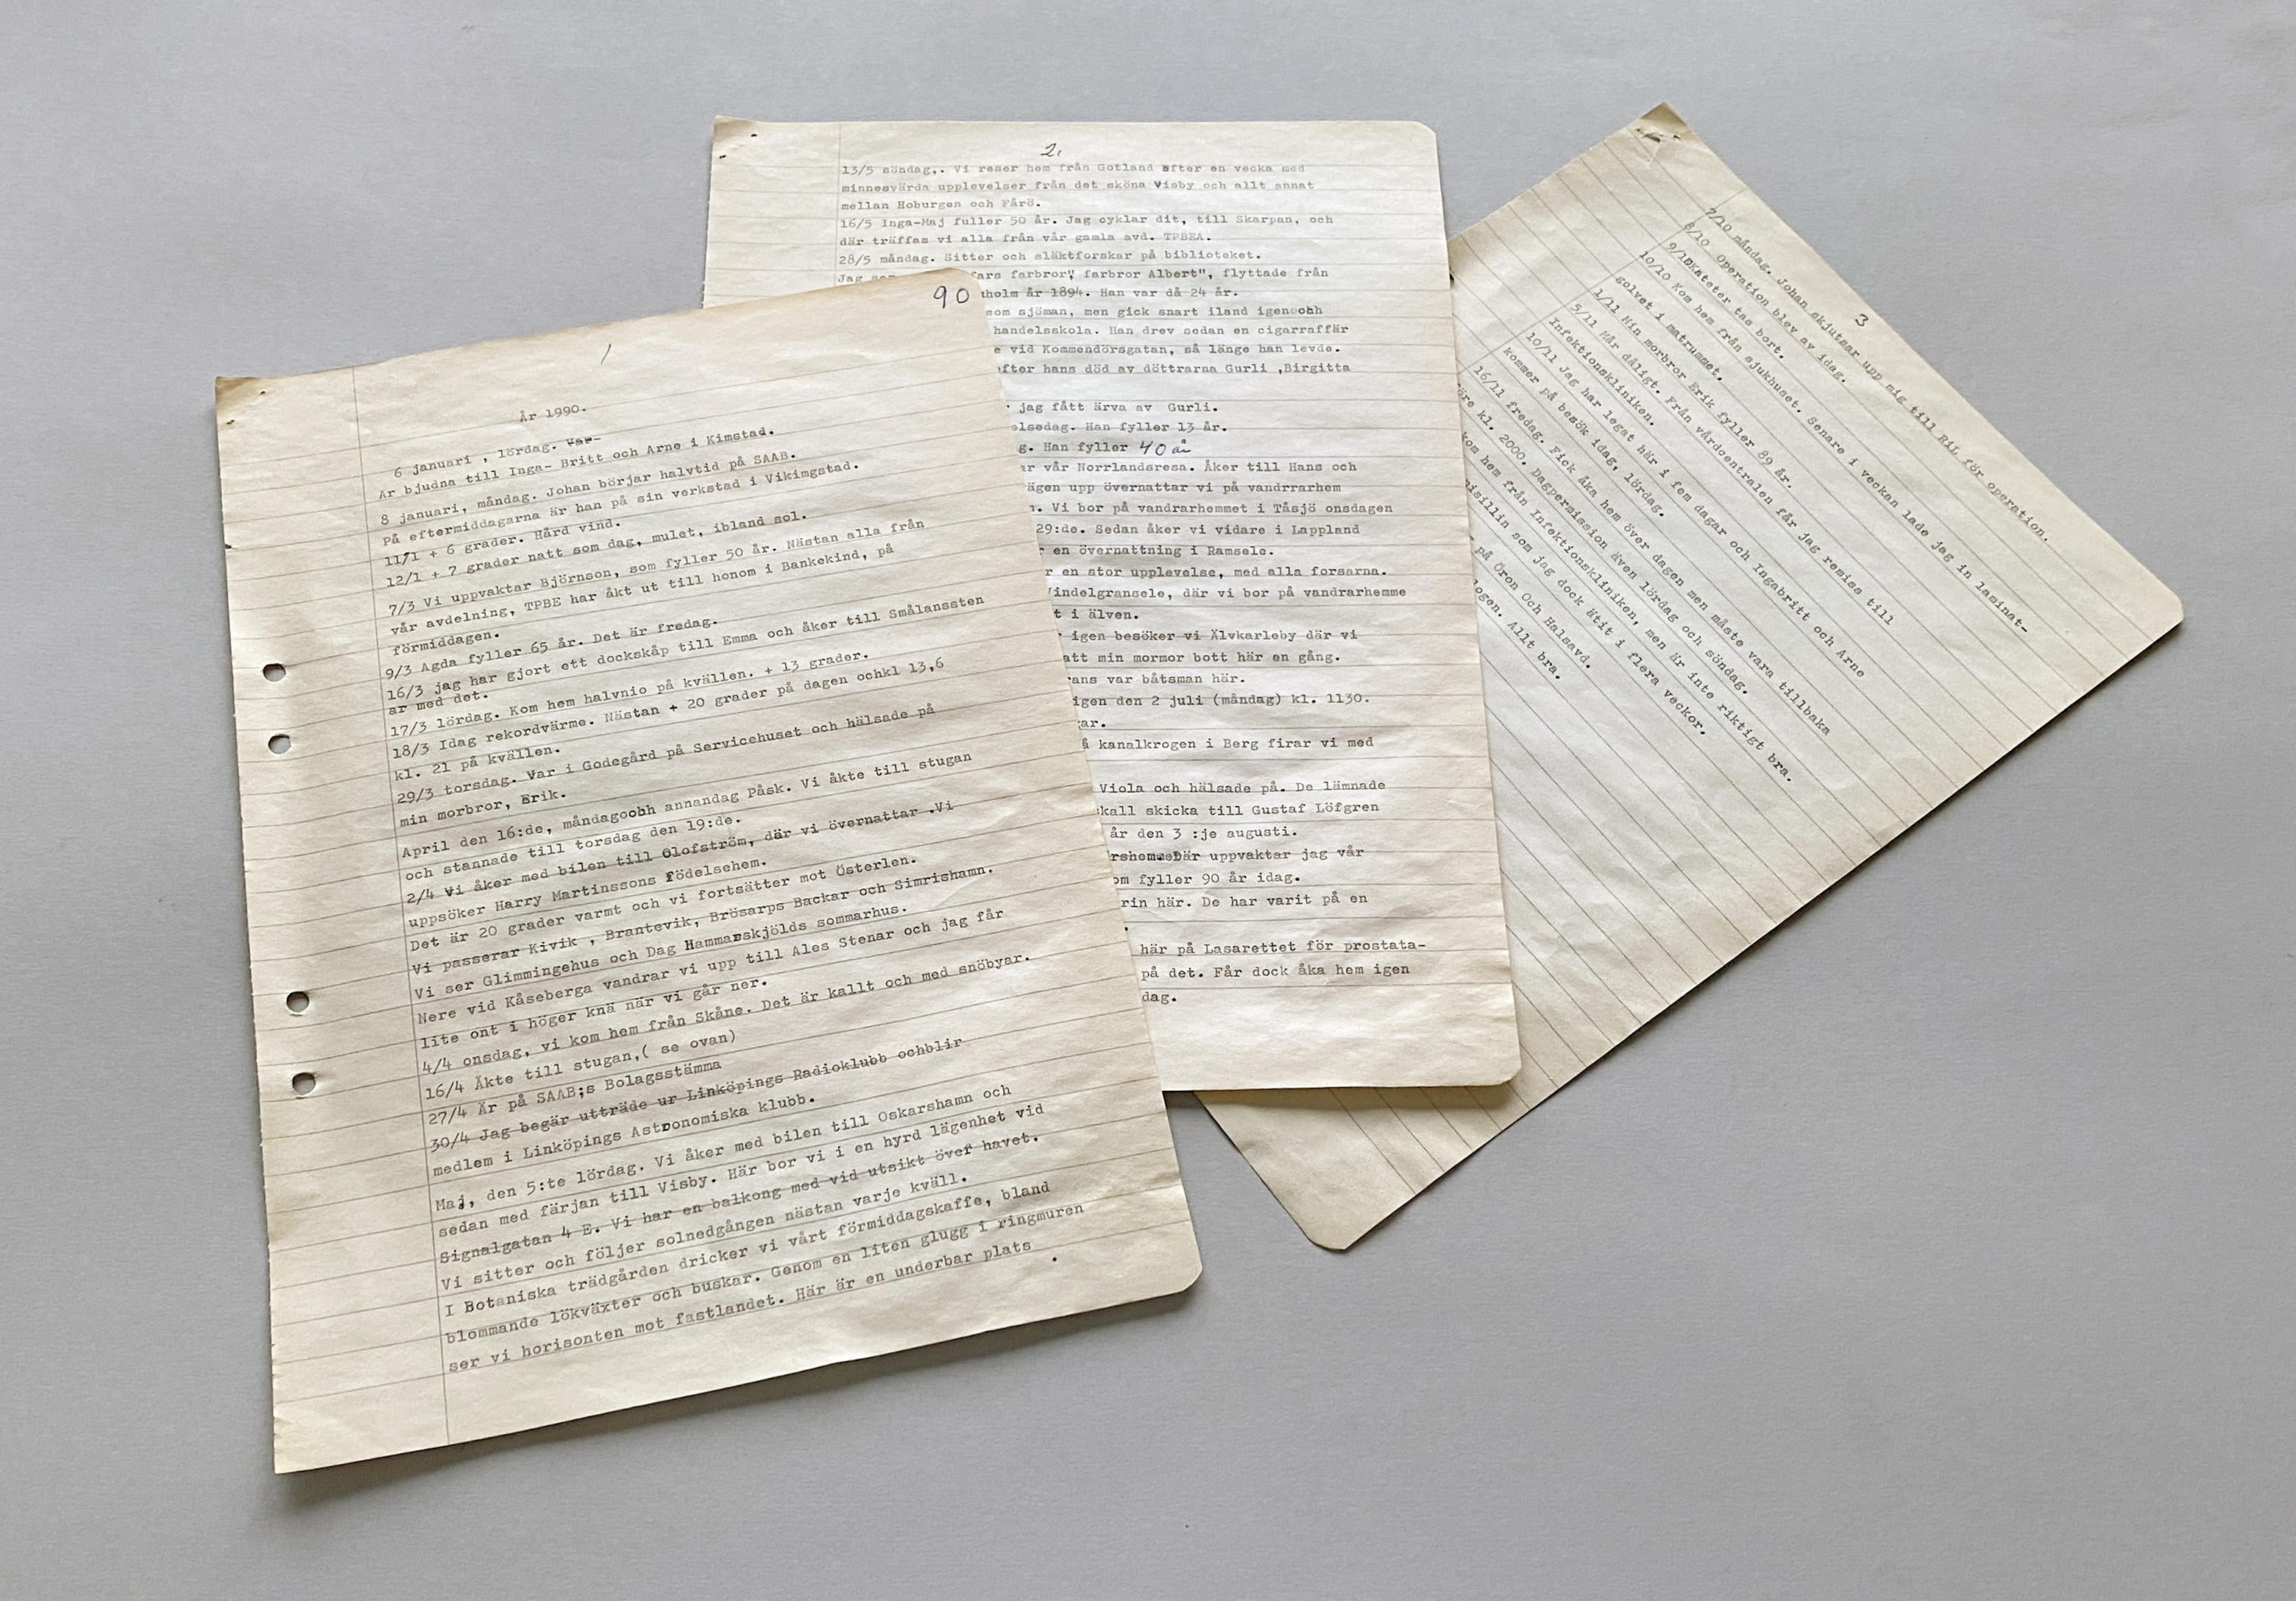 90
1
År 1990.
6 januari , lördag. Var-
Är bjudna till Inga- Britt och Arne i Kimstad.
8 januari, måndag. Johan börjar halvtid på SAAB.
På eftermiddagarna är han på sin verkstad i Vikimgstad.
11/1 + 6 grader. Hård vind.
12/1 + 7 grader natt som dag, mulet, ibland sol.
7/3 Vi uppvaktar Björnson, som fyller 50 år. Nästan alla från
vår avdelning, TPBE har åkt ut till honom i Bankekind, på
förmiddagen.
9/3 Agda fyller 65 år. Det är fredag.
16/3 jag har gjort ett dockskåp till Emma och åker till Smålanssten
ar med det.
17/3 lördag. Kom hem halvnio på kvällen. + 13 grader.
18/3 Idag rekordvärme. Nästan + 20 grader på dagen ochkl 13,6
kl. 21 på kvällen.
29/3 torsdag. Var i Godegård på Servicehuset och hälsade på
min morbror, Erik.
April den 16:de, måndagochh annandag Påsk. Vi åkte till stugan
och stannade till torsdag den 19:de.
2/4 Vi åker med bilen till Olofström, där vi övernattar .Vi
uppsöker Harry Martinssons födelsehem.
Det är 20 grader varmt och vi fortsätter mot Österlen.
Vi passerar Kivik , Brantevik, Brösarps Backar och Simrishamn.
Vi ser Glimmingehus och Dag Hammarskjölds sommarhus.
Nere vid Kåseberga vandrar vi upp till Ales Stenar och jag får
lite ont i höger knä när vi går ner.
4/4 onsdag, vi kom hem från Skåne. Det är kallt och med snöbyar.
16/4 Åkte till stugan,( se ovan)
27/4 Är på SAAB;s Bolagsstämma
30/4 Jag begär utträde ur Linköpings Radioklubb ochblir
medlem i Linköpings Astronomiska klubb.
Maj, den 5:te lördag. Vi åker med bilen till Oskarshamn och
sedan med färjan till Visby. Här bor vi i en hyrd lägenhet vid
Signalgatan 4 E. Vi har en balkong med vid utsikt över havet.
Vi sitter och följer solnedgången nästan varje kväll.
I Botaniska trädgården dricker vi vårt förmiddagskaffe, bland
blommande lökväxter och buskar. Genom en liten glugg i ringmuren
ser vi horisonten mot fastlandet. Här är en underbar plats
2.
13/5 söndag,. Vi reser hem från Gotland efter en vecka med
minnesvärda upplevelser från det sköna Visby och allt annat
mellan Hoburgen och Fårö.
16/5 Inga-Maj fuller 50 år. Jag cyklar dit, till Skarpan, och
där träffas vi alla från vår gamla avd. TPBEA.
28/5 måndag. Sitter och släktforskar på biblioteket.
Jag fars farbror" farbror Albert", flyttade från
holm år 1894. Han var då 24 år.
som sjöman, men gick snart iland igenochh
handelsskola. Han drev sedan en cigarraffär
e vid Kommendörsgatan, så länge han levde.
efter hans död av döttrarna Gurli ,Birgitta
jag fått ärva av Gurli.
elsedag. Han fyller 13 år.
g. Han fyller 40 år
ar vår Norrlandsresa. Åker till Hans och
ägen upp övernattar vi på vandrrarhem
. Vi bor på vandrarhemmet i Tåsjö onsdagen
29:de. Sedan åker vi vidare i Lappland
r en övernattning i Ramsele.
r en stor upplevelse, med alla forsarna.
Vindelgransele, där vi bor på vandrarhemme
t i älven.
r igen besöker vi Älvkarleby där vi
att min mormor bott här en gång.
rans var båtsman här.
igen den 2 juli (måndag) kl. 1130.
gar.
å kanalkrogen i Berg firar vi med
Viola och hälsade på. De lämnade
skall skicka till Gustaf Löfgren
år den 3 :je augusti.
uppvaktar jag vår
om fyller 90 år idag.
rin här. De har varit på en
här på Lasarettet för prostata-
på det. Får dock åka hem igen
dag.
3
7/10 måndag. Johan skjutsar upp mig till RiL för operation.
8/10 Operation blev av idag.
9/10Kateter tas bort.
10/10 Kom hem från sjukhuset. Senare i veckan lade jag in laminat-
golvet i matrummet.
1/11 Min morbror Erik fyller 89 år.
5/11 Mår dåligt. Från vårdcentralen får jag remiss till
Infektionskliniken.
10/11 Jag har legat här i fem dagar och Ingabritt och Arne
kommer på besök idag, lördag.
16/11 fredag. Fick åka hem över dagen men måste vara tillbaka
före kl. 2000. Dagpermission även lördag och söndag.
kom hem från Infektionskliniken, men är inte riktigt bra.
isillin som jag dock ätit i flera veckor.
på Öron Och Halsavd.
logen. Allt bra.